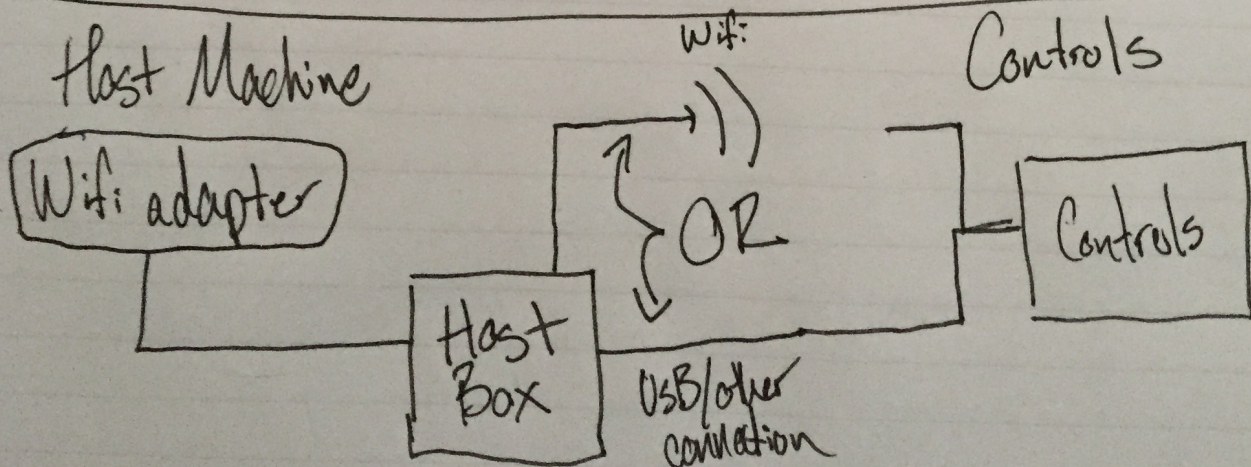 Host Machine
Wifi
Controls
Wifi adapter
OR
Controls
Host
Box
USB/other
connection